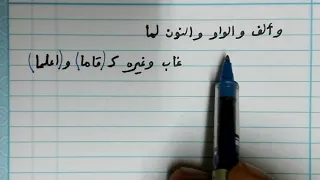 وألف والواو والنون لما
غاب وغيره كـ (قاما) و(اعلما)